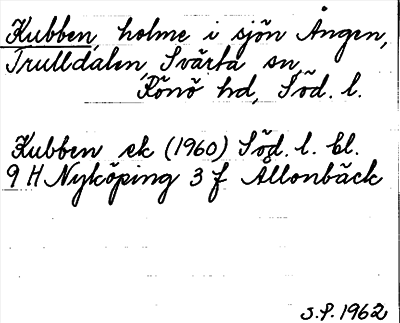 Kubben, holme i sjön Ången,
Trulldalen, Svärta sn,
Rönö hd, Söd. l.
Kubben ek (1960) Söd. l. bl.
9 H Nyköping 3 f Ållonbäck
S.P. 1962